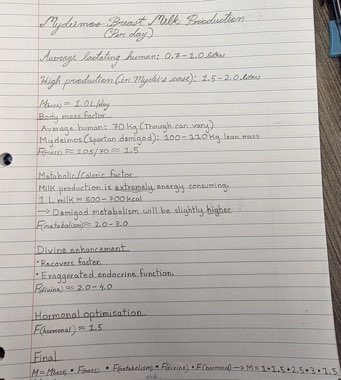 Mydeimos Breast Milk Production
(Per day)
Average lactating human: 0.7-1.0 litres
High production (in Mydei's case): 1.5-2.0 litres
M(base) = 1.0 L/day
Body mass factor
Average human: 70 kg (Though can vary)
Mydeimos (Spartan demigod): 100-110 kg lean mass
F(mass) ≈ 105/70 ≈ 1.5
Metabolic/Caloric factor
Milk production is extremely energy consuming.
1 L milk ≈ 500-700 kcal
→ Demigod metabolism will be slightly higher
F(metabolism) ≈ 2.0-3.0
Divine enhancement
• Recovers faster.
• Exaggerated endocrine function.
F(divine) ≈ 2.0-4.0
Hormonal optimisation
F(hormonal) ≈ 1.5
Final
M = M(base) • F(mass) • F(metabolism) • F(divine) • F(hormonal) → M = 1•1.5•2.5•3•1.5